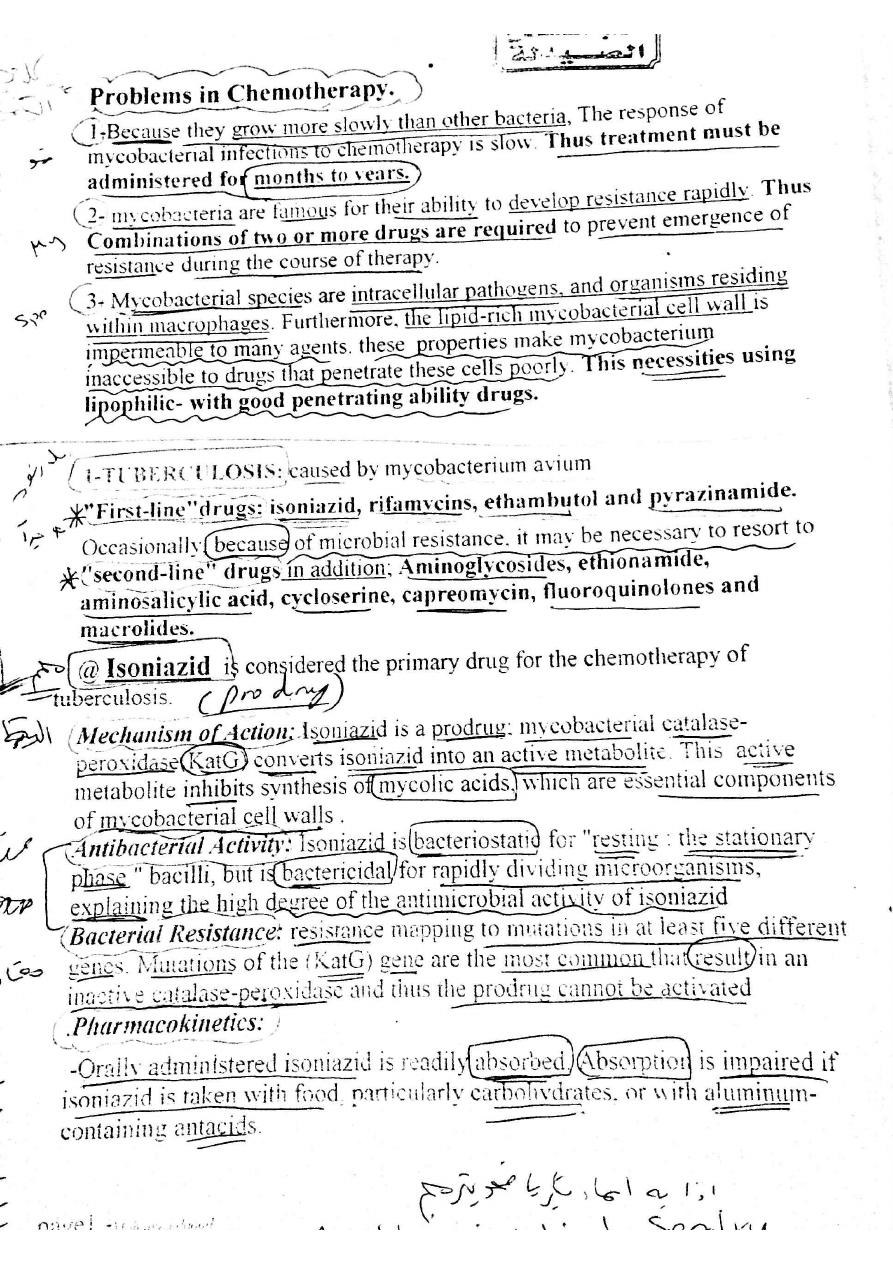 الصيدلة
Problems in Chemotherapy.
1-Because they grow more slowly than other bacteria, The response of
mycobacterial infections to chemotherapy is slow. Thus treatment must be
administered for months to years.
2- mycobacteria are famous for their ability to develop resistance rapidly. Thus
Combinations of two or more drugs are required to prevent emergence of
resistance during the course of therapy.
3- Mycobacterial species are intracellular pathogens, and organisms residing
within macrophages. Furthermore, the lipid-rich mycobacterial cell wall is
impermeable to many agents. these properties make mycobacterium
inaccessible to drugs that penetrate these cells poorly. This necessities using
lipophilic- with good penetrating ability drugs.
1-TUBERCULOSIS: caused by mycobacterium avium
*"First-line" drugs: isoniazid, rifamycins, ethambutol and pyrazinamide.
Occasionally because of microbial resistance. it may be necessary to resort to
*"second-line" drugs in addition; Aminoglycosides, ethionamide,
aminosalicylic acid, cycloserine, capreomycin, fluoroquinolones and
macrolides.
@ Isoniazid is considered the primary drug for the chemotherapy of
tuberculosis. (prodrug)
Mechanism of Action: Isoniazid is a prodrug; mycobacterial catalase-
peroxidase (KatG) converts isoniazid into an active metabolite. This active
metabolite inhibits synthesis of mycolic acids, which are essential components
of mycobacterial cell walls .
Antibacterial Activity: Isoniazid is bacteriostatic for "resting : the stationary
phase " bacilli, but is bactericidal for rapidly dividing microorganisms,
explaining the high degree of the antimicrobial activity of isoniazid
Bacterial Resistance: resistance mapping to mutations in at least five different
genes. Mutations of the (KatG) gene are the most common that result in an
inactive catalase-peroxidase and thus the prodrug cannot be activated
.Pharmacokinetics:
-Orally administered isoniazid is readily absorbed. Absorption is impaired if
isoniazid is taken with food, particularly carbohydrates, or with aluminum-
containing antacids.